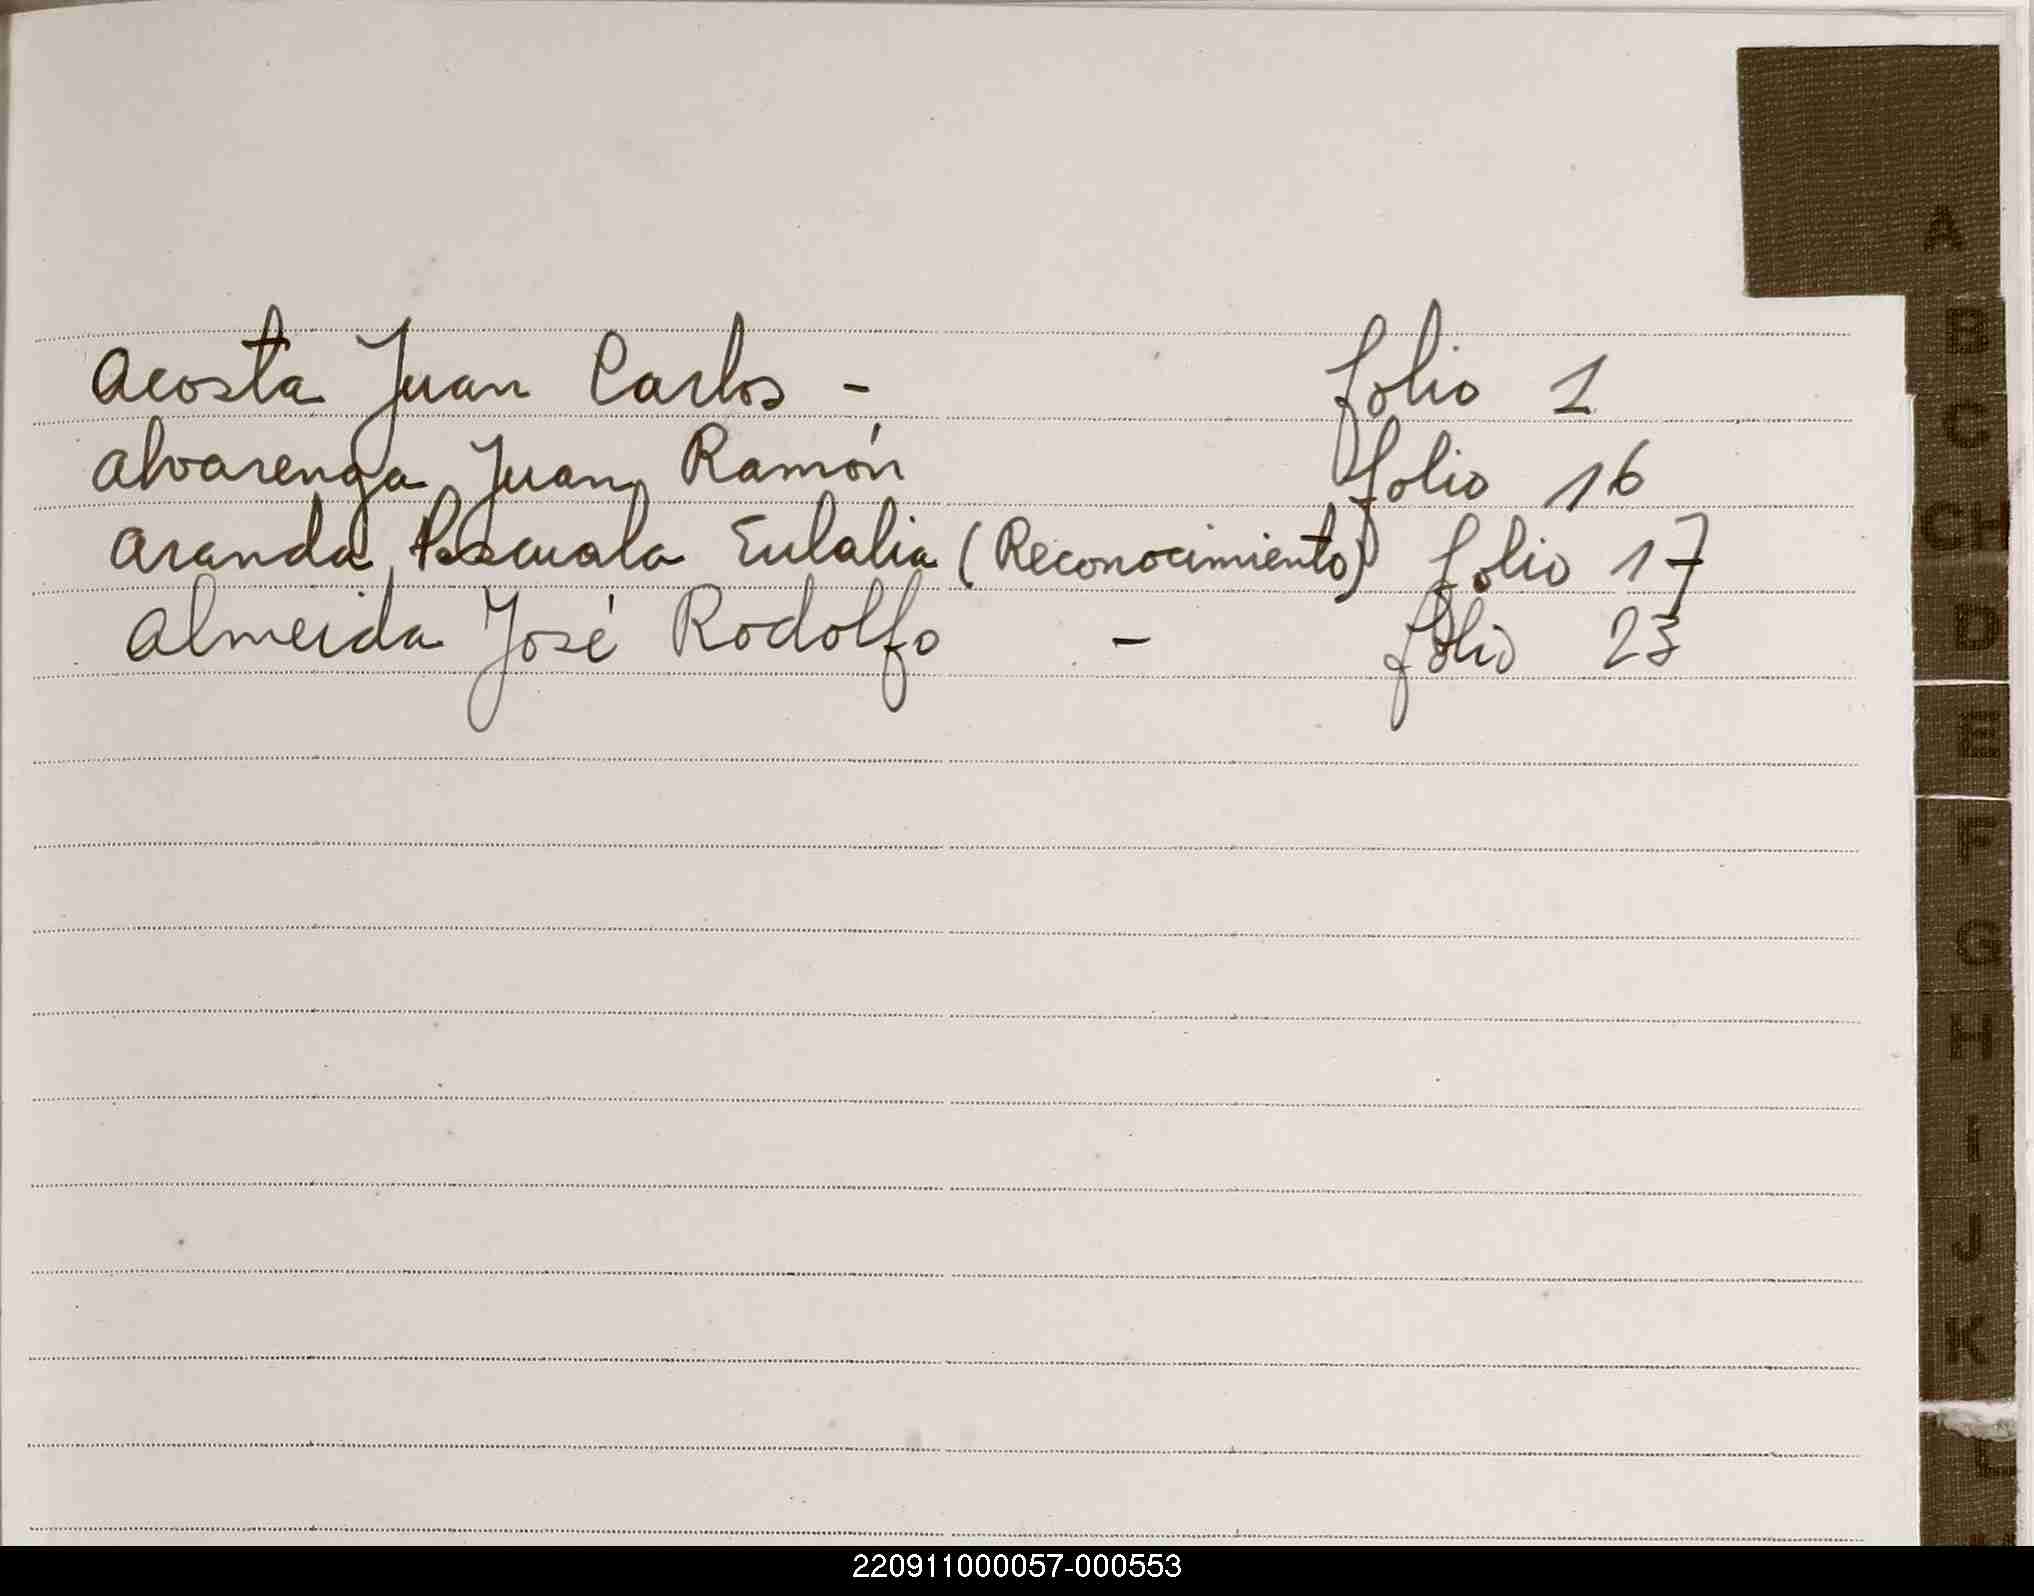 A
Acosta Juan Carlos - folio 1
B
C
Alvarenga Juan Ramón folio 16
CH
Aranda, Pascuala Eulalia (Reconocimiento) folio 17
D
Almeida José Rodolfo - folio 23
E
F
G
H
I
J
K
L
220911000057-000553